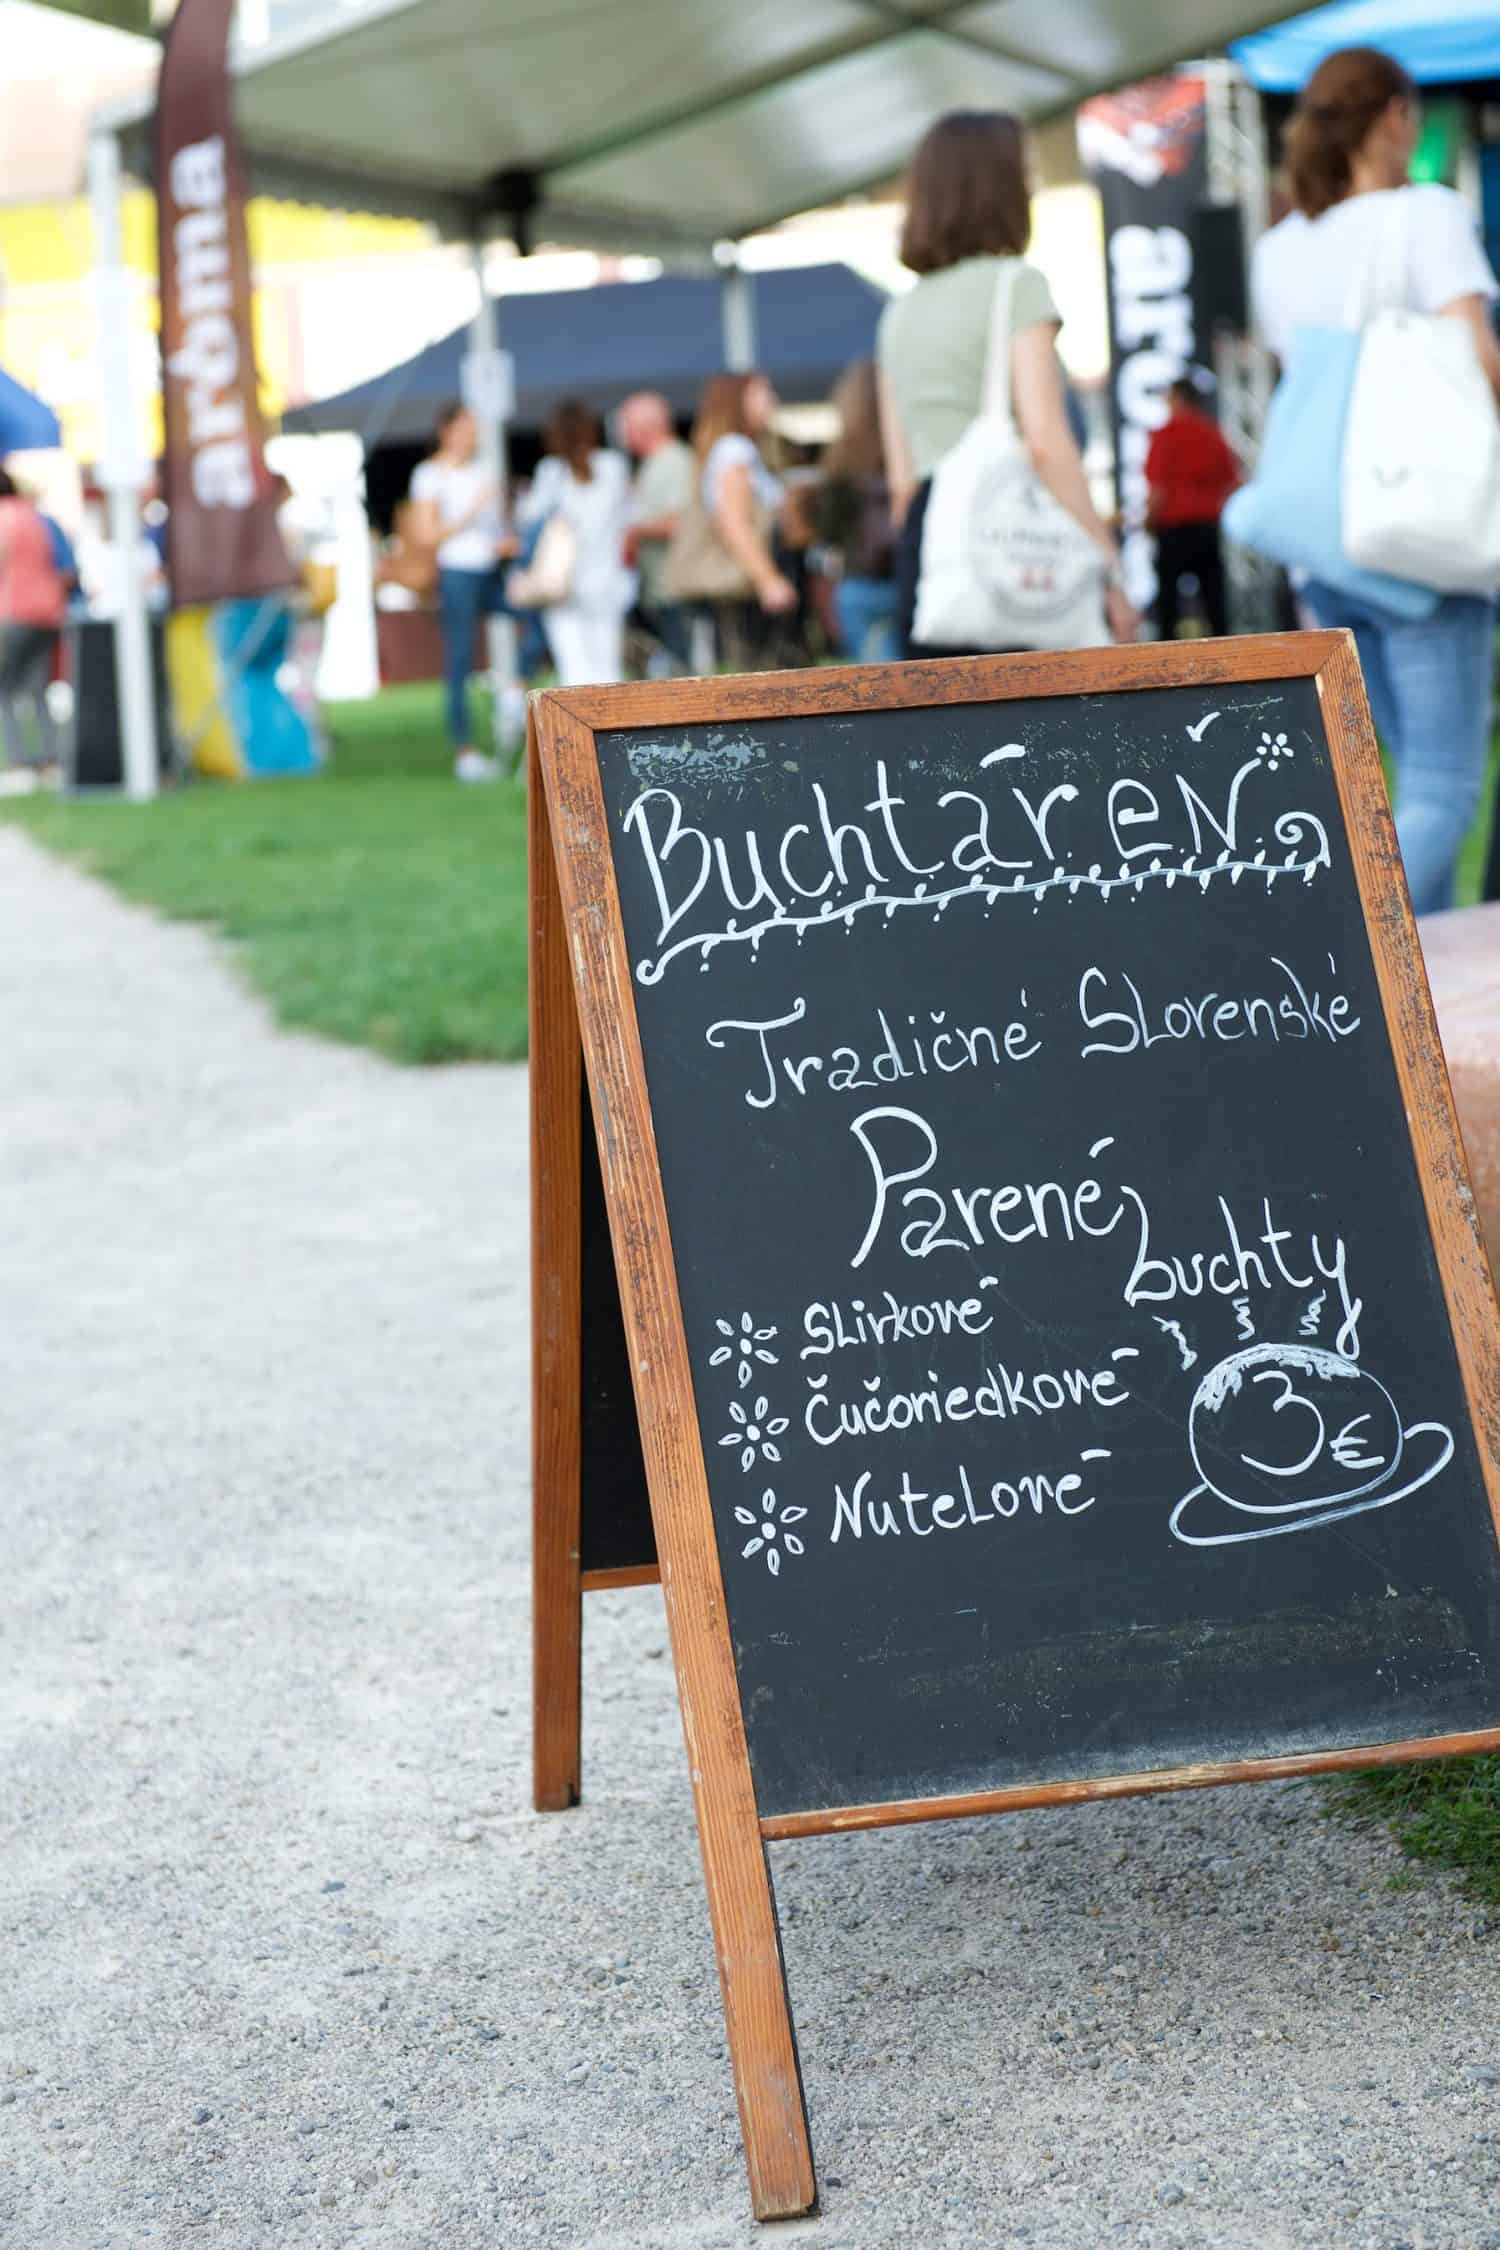 aroma
aro
Buchtáreň
Tradičné Slovenské
Parené buchty
Slivkové
Čučoriedkové
Nutelové
3€